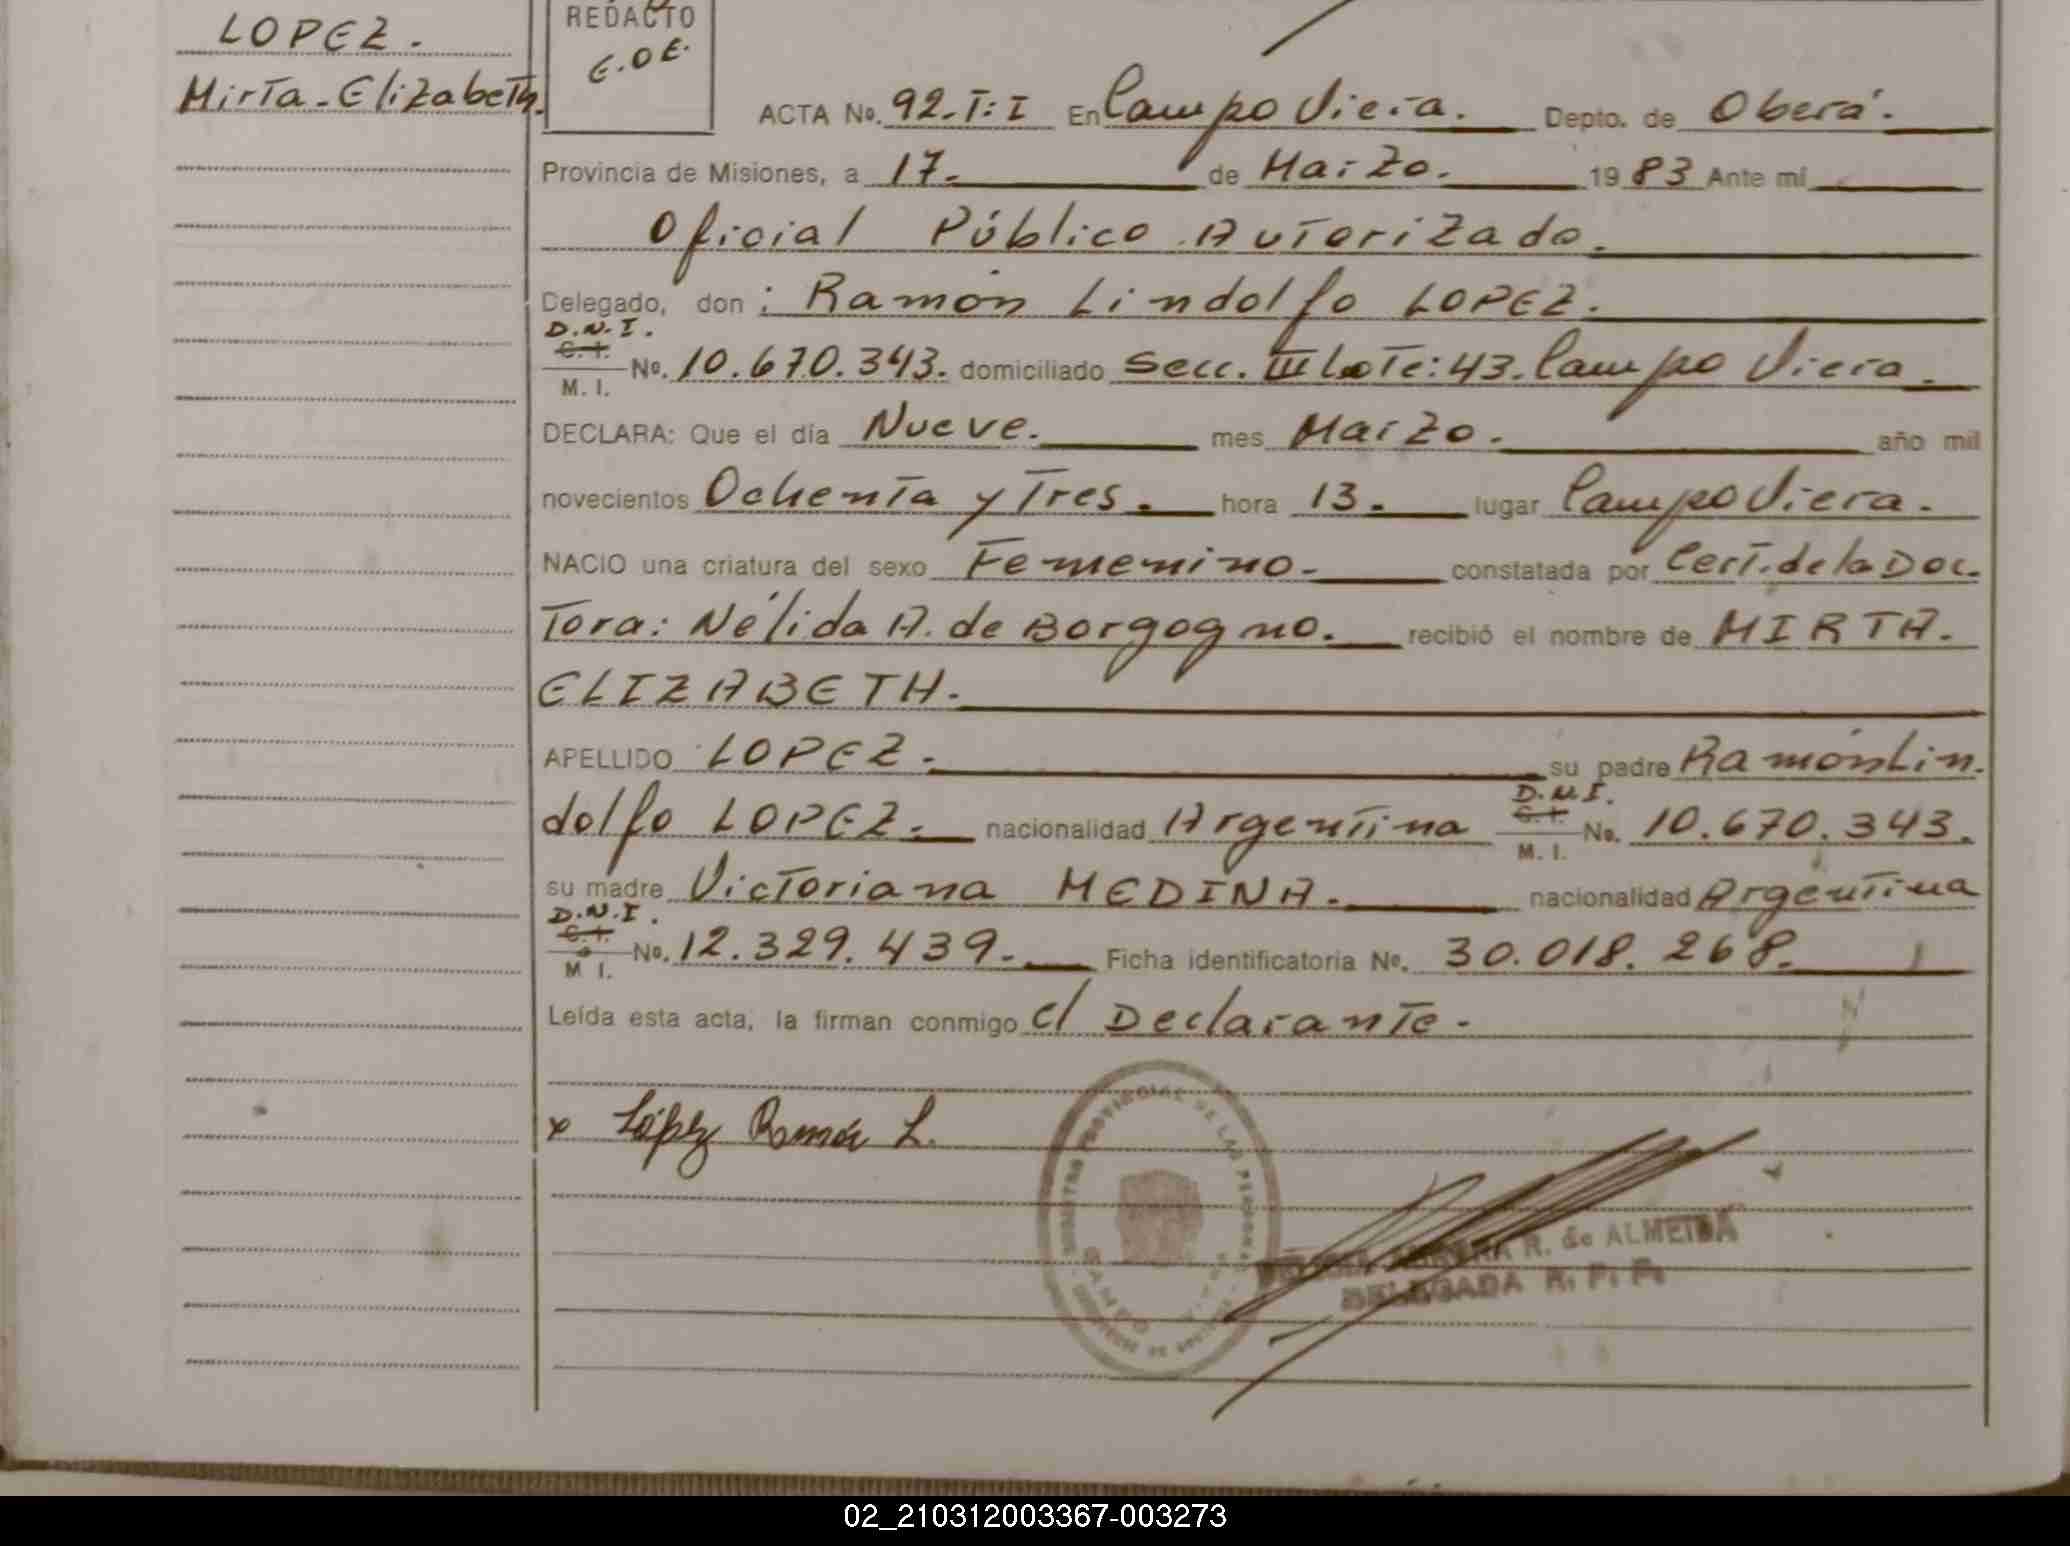 LOPEZ.
Mirta-Elizabeth.
REDACTO
E.O E.
ACTA No. 92.T:I En Campo Viera. Depto. de Oberá.
Provincia de Misiones, a 17. de Marzo. 1983 Ante mí
Oficial Público Autorizado.
Delegado, don: Ramón Lindolfo LOPEZ.
D.N.I.
C. I.
M. I. No. 10.670.343. domiciliado Secc. III Lote: 43. Campo Viera.
DECLARA: Que el día Nueve. mes Marzo. año mil
novecientos Ochenta y Tres. hora 13. lugar Campo Viera.
NACIO una criatura del sexo Femenino. constatada por Cert. de la Doc.
Tora: Nélida A. de Borgogno. recibió el nombre de MIRTA.
ELIZABETH.
APELLIDO LOPEZ. su padre Ramón Lin.
dolfo LOPEZ. nacionalidad Argentina D.N.I. C. I. M. I. No. 10.670.343.
su madre Victoriana MEDINA. nacionalidad Argentina
D.N.I.
C. I.
M I. No. 12.329.439. Ficha identificatoria No. 30.018.268.
Leída esta acta, la firman conmigo el Declarante.
x López Ramón L.
PROVINCIAL DE LAS PERSONAS
CAMPO
R. de ALMEIDA
DELEGADA R. P. P.
02_210312003367-003273